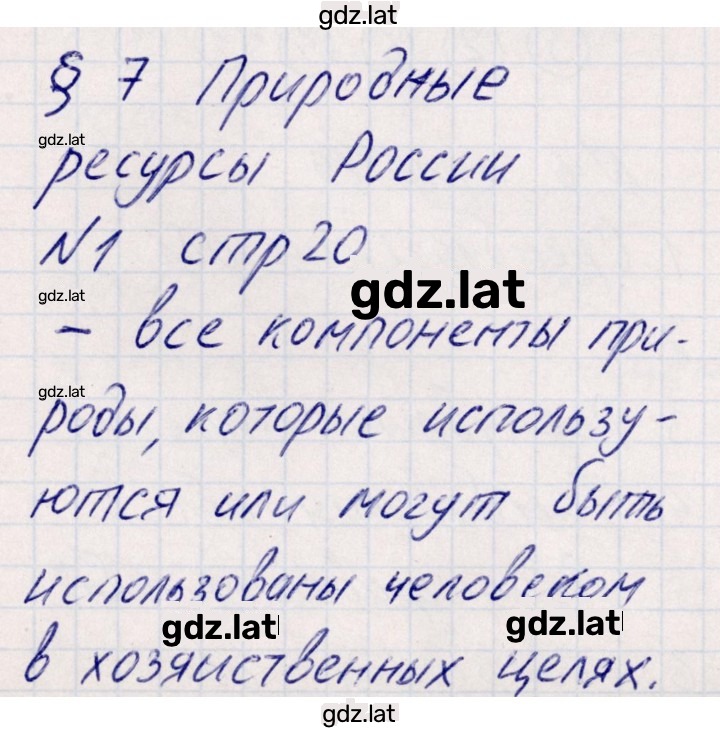 gdz.lat
§ 7 Природные
gdz.lat
ресурсы России
N1 стр 20
gdz.lat
gdz.lat
- все компоненты при-
gdz.lat
роды, которые использу-
ются или могут быть
использованы человеком
gdz.lat
gdz.lat
в хозяйственных целях.
gdz.lat